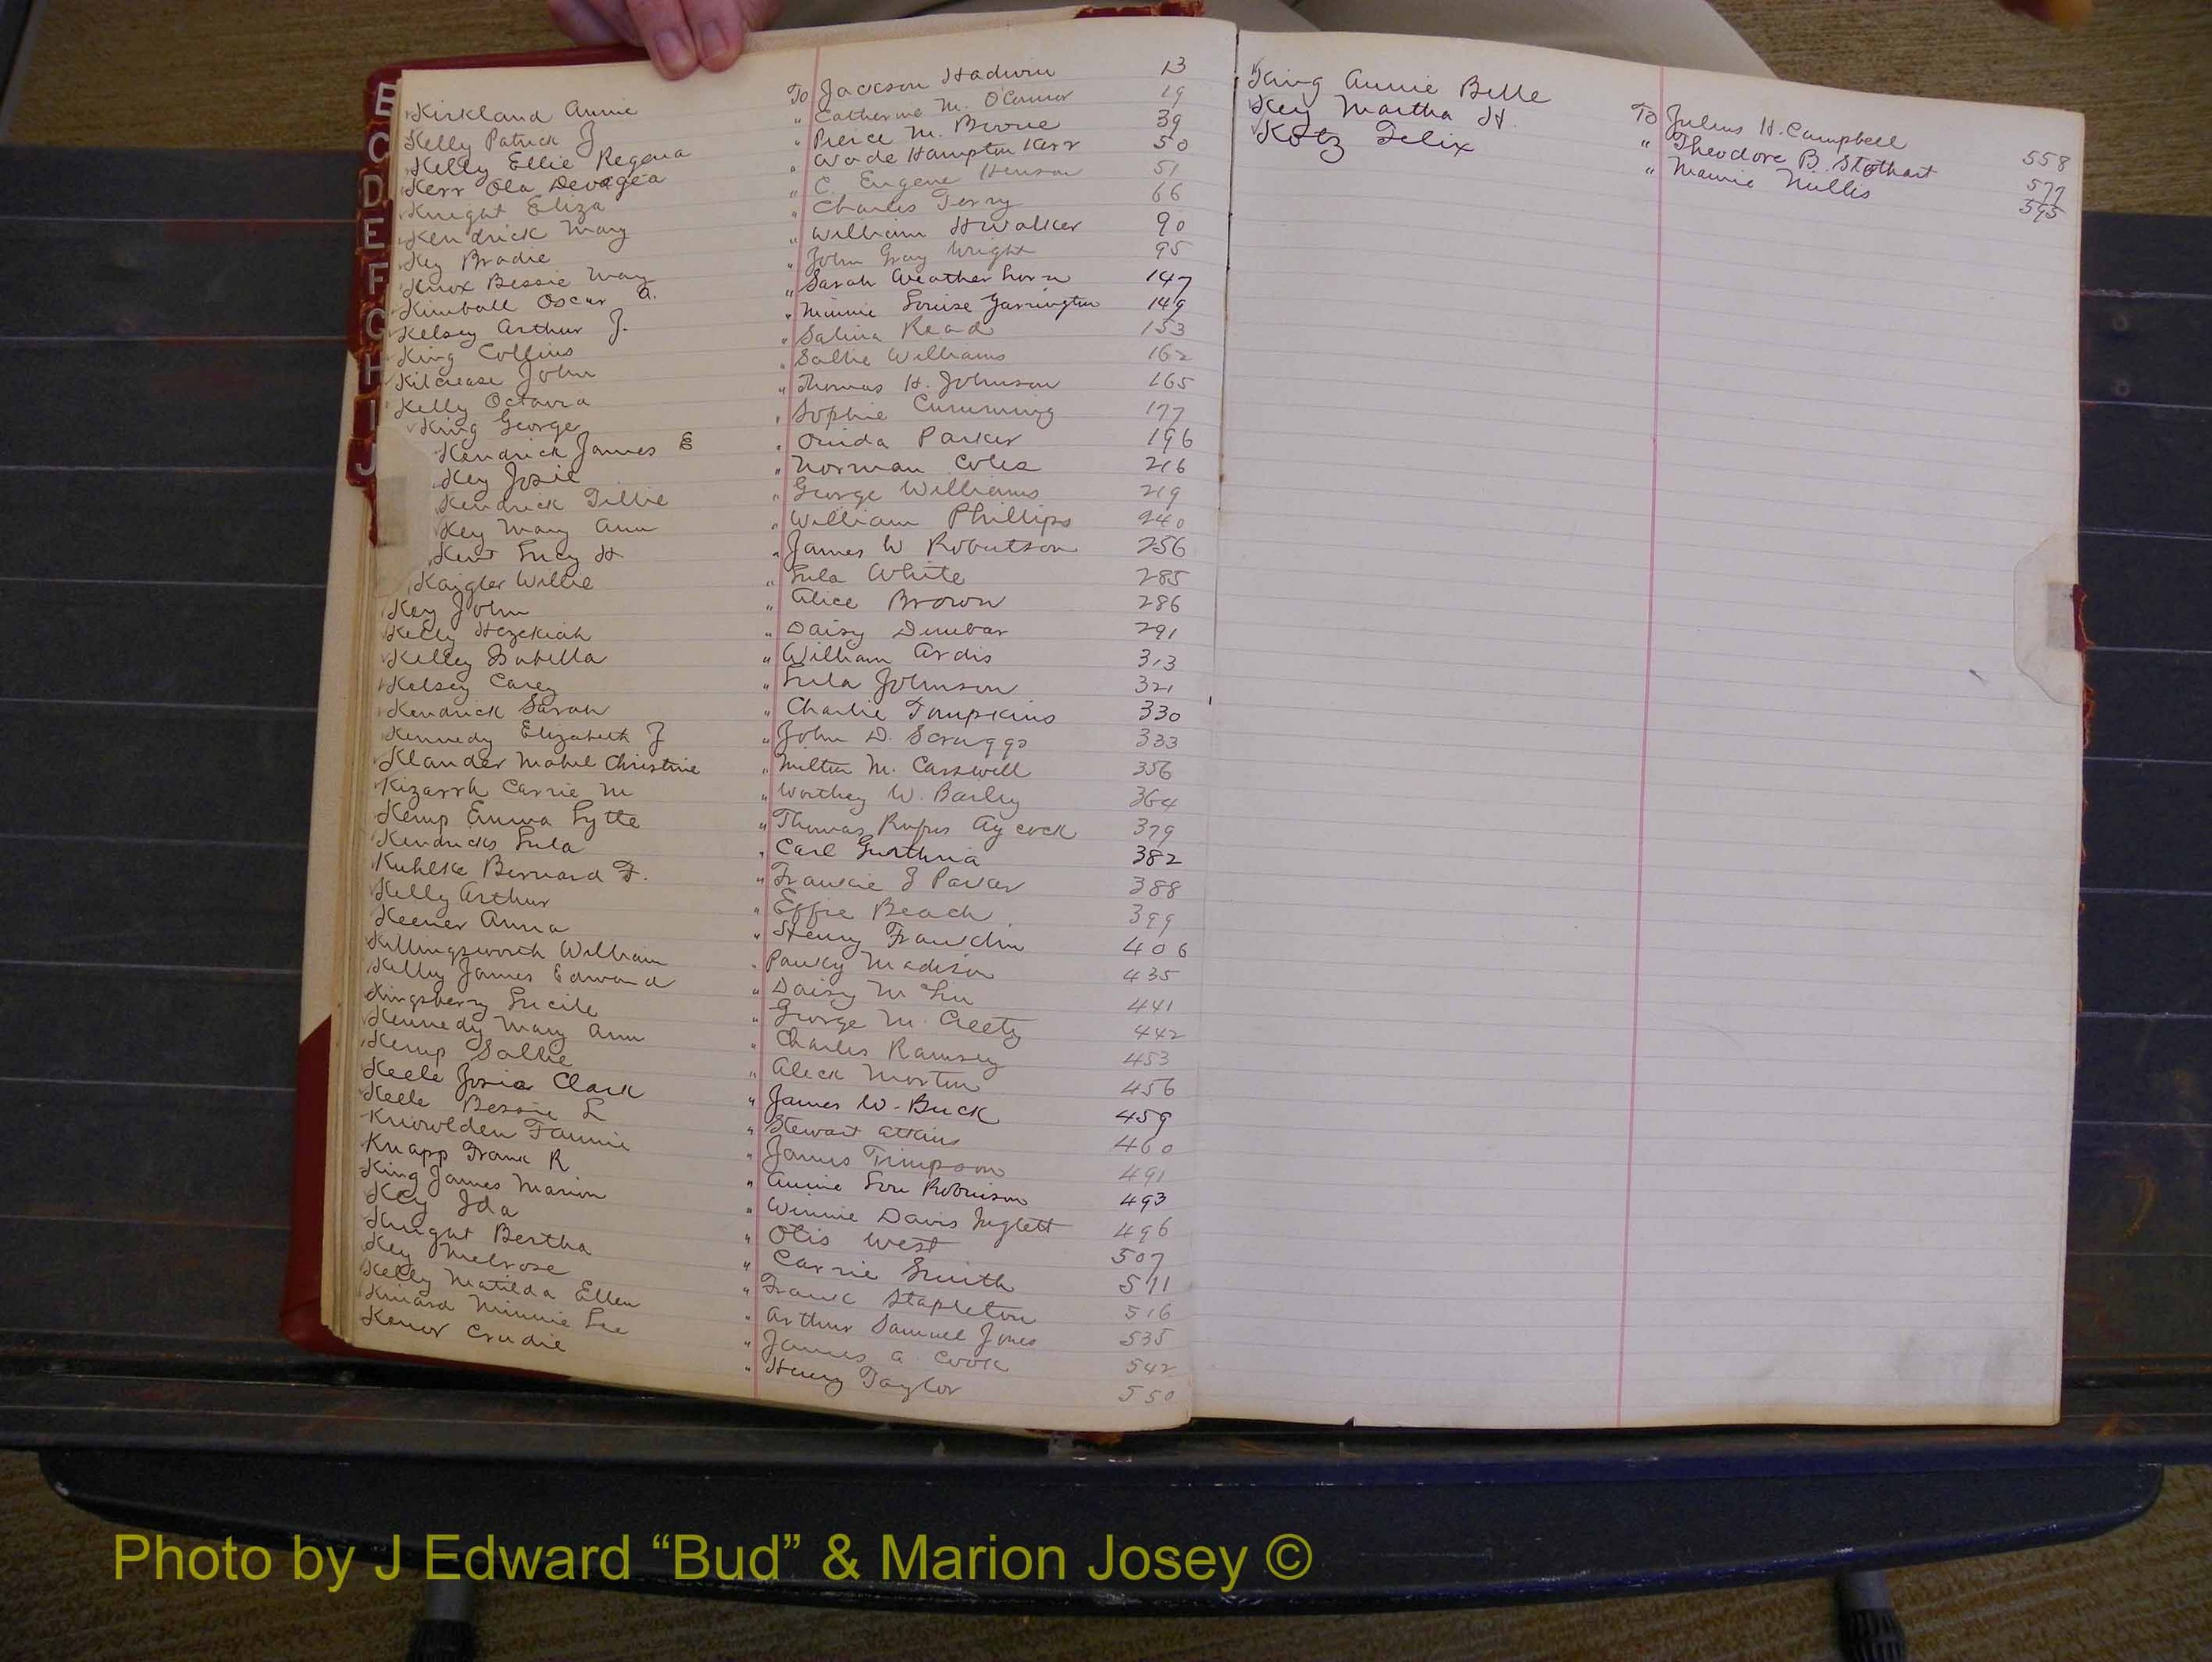 B
C
D
E
F
G
H
I
J
Kirkland Annie To Jackson Hadwin 13
Kelly Patrick J " Catherine M. O'Connor 19
Kelly Ellie Regena " Pierce M. Bowie 39
Kerr Ola Devogea " Wade Hampton Kerr 50
Knight Eliza " C. Eugene Henson 51
Kendrick Mary " Charles Terry 66
Key Brodie " William H Walker 90
Knox Bessie May " John Gray Wright 95
Kimball Oscar A. " Sarah Weatherhorn 147
Kelsey Arthur J. " Minnie Louise Yarrington 149
King Collins " Salina Read 153
Kilcrease John " Sallie Williams 162
Kelly Octavia " Thomas H. Johnson 165
King George " Sophie Cumming 177
Kendrick James E " Ouida Parker 196
Key Josie " Norman Coles 216
Kendrick Tillie " George Williams 219
Key Mary Ann " William Phillips 240
Kent Lucy H " James W Robertson 256
Kaigler Willie " Lula White 285
Key John " Alice Brown 286
Kelly Hezekiah " Daisy Dunbar 291
Kelley Isabella " William Ardis 313
Kelsey Carey " Lula Johnson 321
Kendrick Sarah " Charlie Tompkins 330
Kennedy Elizabeth J " John D. Scruggs 333
Klander Mabel Christine " Milton M. Carswell 356
Kizarrh Carrie M " Worthey W. Bailey 364
Kemp Emma Lytte " Thomas Rufus Aycock 379
Kendricks Lula " Carl Gurthria 382
Kuhlke Bernard F. " Frankie J Parker 388
Kelly Arthur " Effie Beach 399
Keener Anna " Henry Franklin 406
Killingsworth William " Pansy Madison 435
Kelly James Edward " Daisy M 441
Kingsberry Lucile " George M. 442
Kennedy Mary Ann " Charles Ramsey 453
Kemp Sallie " Aleck Morton 456
Keele Josie Clark " James W. Buck 459
Keele Bessie L " Stewart Atkins 460
Knowlden Fannie " James Timpson 491
Knapp Frank R " Annie Lou Robinson 493
King James Marion " Winnie Davis Inglett 496
Key Ida " Otis West 507
Knight Bertha " Carrie Smith 511
Key Melrose " Frank Stapleton 516
Kelly Matilda Ellen " Arthur Samuel Jones 535
Kinard Minnie Lee " James A Cook 542
Kener Crudie " Henry Taylor 550
King Annie Belle To Julius H. Campbell 558
Key Martha H. " Theodore B. Stothart 577
Kotz Felix " Mamie Nullis 595
Photo by J Edward “Bud” & Marion Josey ©